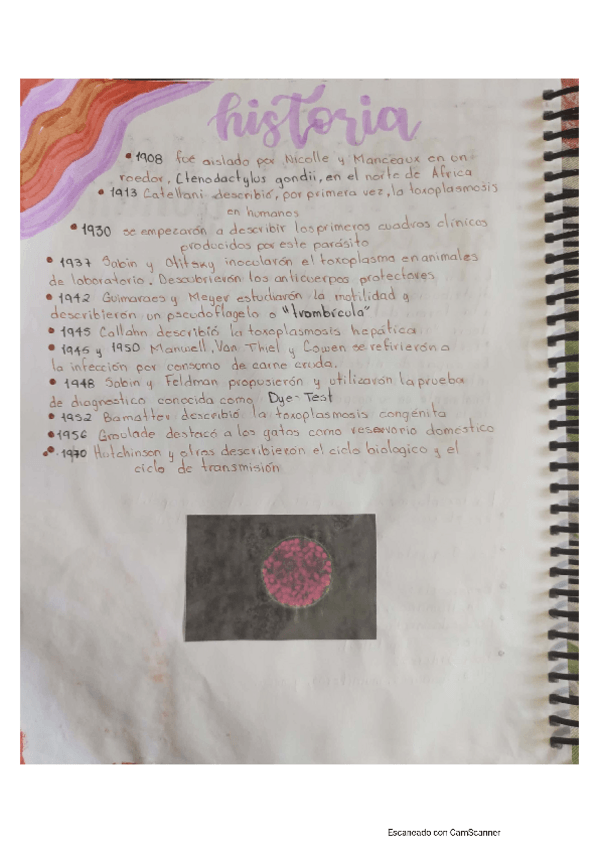 historia
• 1908 fué aislado por Nicolle y Manceaux en un
roedor, Ctenodactylus gondii, en el norte de Africa
• 1913 Catellani describió, por primera vez, la toxoplasmosis
en humanos
• 1930 se empezarón a describir los primeros cuadros clínicos
producidos por este parásito
• 1937 Sabin y Olitsky inocularón el toxoplasma en animales
de laboratorio. Descubrierón los anticuerpos protectores
• 1942 Guimaraes y Meyer estudiarón la motilidad y
describierón un pseudoflagelo o "trombícula"
• 1945 Callahn describió la toxoplasmosis hepática
• 1945 y 1950 Manwell, Van Thiel y Cowen se refirierón a
la infección por consumo de carne cruda.
• 1948 Sabin y Feldman propusierón y utilizarón la prueba
de diagnostico conocida como Dye-Test
• 1952 Bamatter describió la toxoplasmosis congénita
• 1956 Groulade destacó a los gatos como reservorio doméstico
• 1970 Hutchinson y otros describieron el ciclo biologico y el
ciclo de transmisión
Escaneado con CamScanner